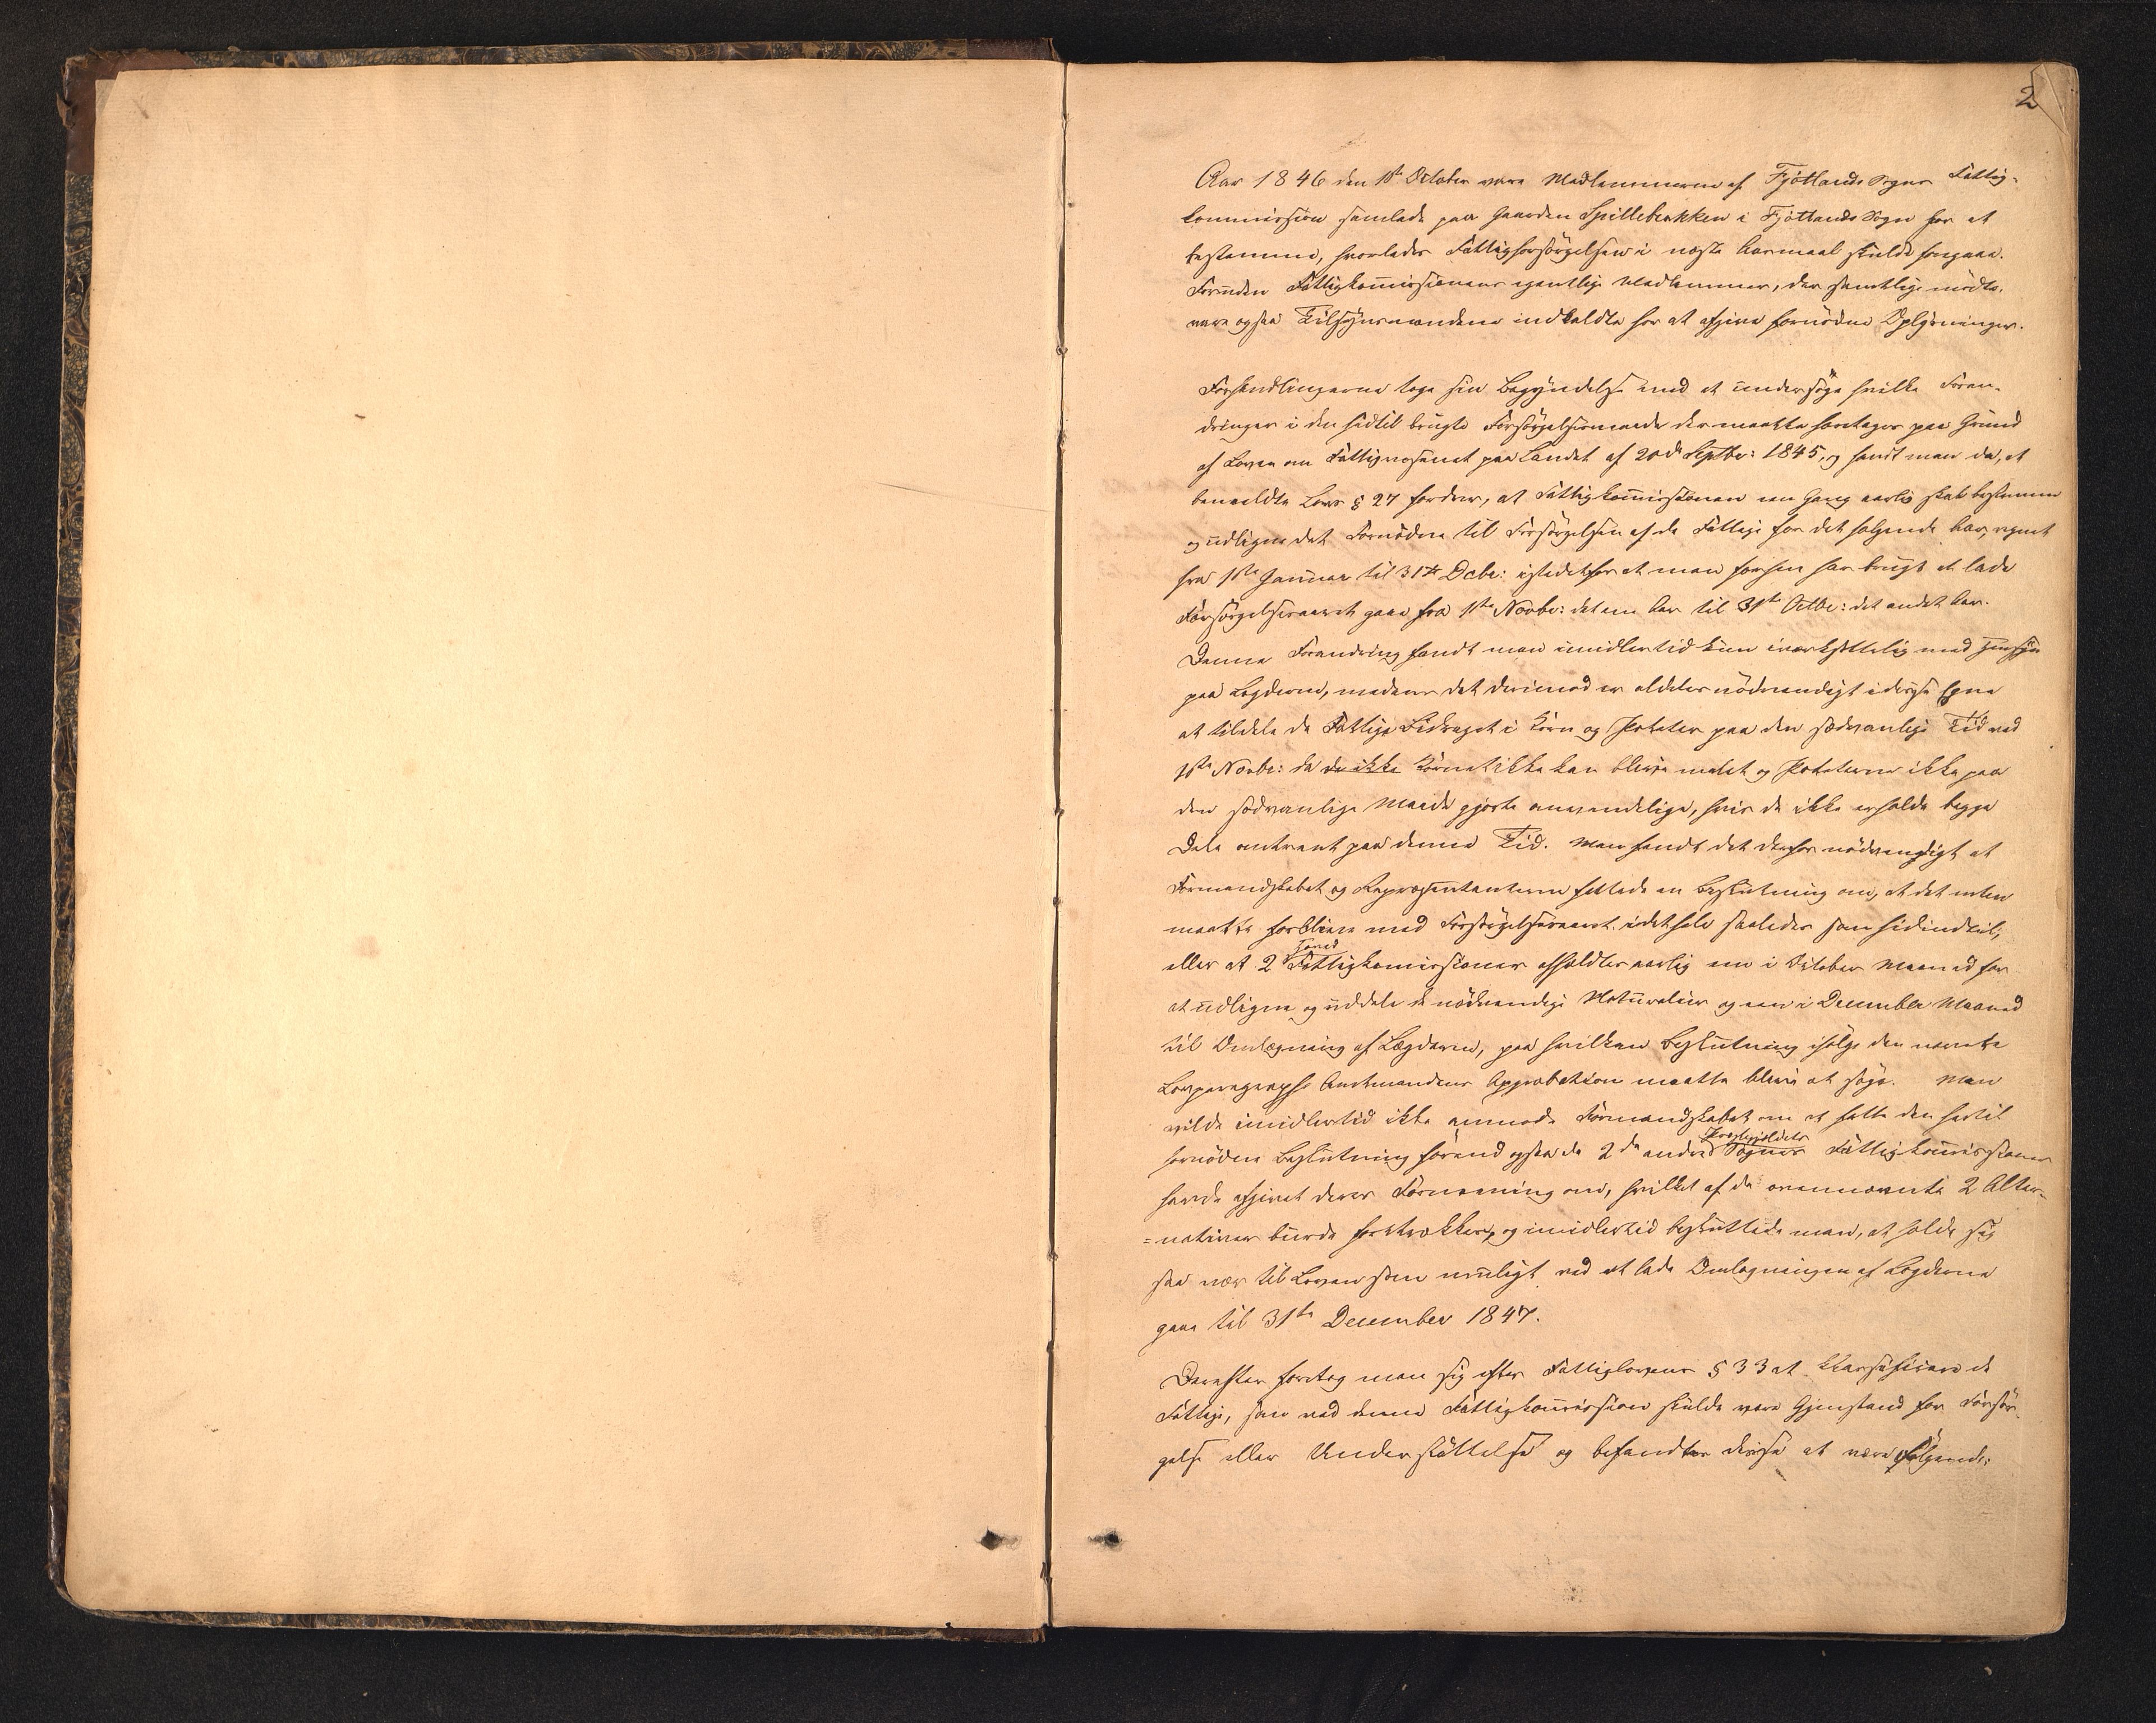 2
Aar 1846 den 1ste October vare Medlemmerne af Fjotlands Sogns Fattig-
kommission samlede paa Gaarden Spillebrokken i Fjotlands Sogn for at
bestemme, hvorledes Fattigforsørgelsen i næste Aarmaal skulde foregaae.
Foruden Fattigkommissionens egentlige Medlemmer, der samtlige mødte,
vare ogsaa Tilsynsmændene indkaldte for at afgive fornødne Oplysninger.
Forhandlingerne toge sin Begyndelse med at undersøge hvilke Foran-
dringer i den hidtil brugte Forsørgelsesmaade der maatte foretages paa Grund
af Loven om Fattigvæsenet paa Landet af 20de Septbr: 1845, og fandt man da, at
bemeldte Lovs § 27 fordrer, at Fattigkommissionen een Gang aarlig skal bestemme
og udligne det Fornødne til Forsørgelsen af de Fattige for det følgende Aar, regnet
fra 1ste Januar til 31te Decbr: istedetfor at man forhen har brugt at lade
Forsørgelsesaaret gaae fra 1ste Novbr: det ene Aar til 31te Octbr: det andet Aar.
Denne Forandring fandt man imidlertid kun iværksættelig med Hensyn
paa Lægderne, medens det derimod er aldeles nødvendigt i disse Egne
at tildele de Fattige Bidraget i Korn og Poteter paa den sædvanlige Tid ved
1ste Novbr: da de ikke Kornet ikke kan blive malet og Poteterne ikke paa
den sædvanlige Maade gjorte anvendelige, hvis de ikke erholde begge
Dele omtrent paa denne Tid. Man fandt det derfor nødvendigt at
Formandskabet og Repræsentanterne fattede en Beslutning om, at det enten
maatte forblive med Forsørgelsesaaret i det hele saaledes som hidindtil,
eller at 2 Fattigkommissioner afholdtes aarlig een i October Maaned for
at udligne og uddele de nødvendige Naturalier og een i December Maaned
til Omlægning af Lægderne, paa hvilken Beslutning ifølge den nævnte
Lovparagraph Amtmandens Approbation maatte blive at søge. Man
vilde imidlertid ikke anmode Formandskabet om at fatte den hertil
Præstegjeldets
fornødne Beslutning førend ogsaa de 2de andre Sognes Fattigkommissioner
havde afgivet deres Formening om, hvilket af de ovennævnte 2 Alter-
=nativer burde foretrækkes, og imidlertid besluttede man, at holde sig
saa nær til Loven som muligt ved at lade Omlægningen af Lægderne
gaae til 31te December 1847.
Derefter foretog man sig efter Fattiglovens § 33 at klassificere de
Fattige, som ved denne Fattigkommission skulde være Gjenstand for Forsør-
gelse eller Understøttelse og befandtes disse at være følgende: